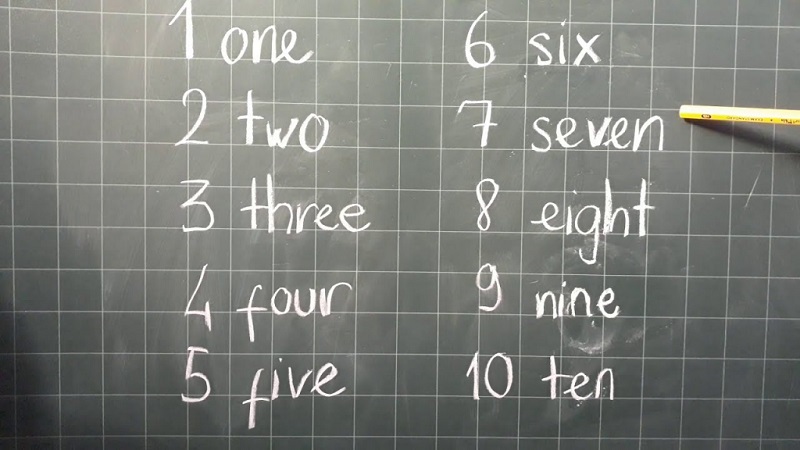 1 one
2 two
3 three
4 four
5 five
6 six
7 seven
8 eight
9 nine
10 ten